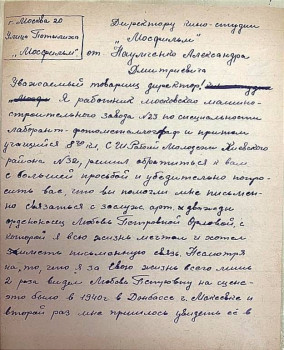 г. Москва 20
Улица Потылиха
"Мосфильм"
Директору кино-студии
"Мосфильм"
от Науличенко Александра
Дмитриевича
Уважаемый товарищ директор!
Я работник московского машино-
строительного завода №23 по специальности
лаборант-фотометаллограф и притом
учащийся 8го кл. Ш.Рабочей Молодежи Киевского
района №32, решил обратиться к вам
с большей просьбой и убедительно попро-
сить вас, что вы помогли мне письмен-
но связаться с заслуж. арт. и дважды
орденоносец Любовь Петровной Орловой, с
которой я всю жизнь мечтал и хотел
заиметь письменную связь. Несмотря
на то, что я за свою жизнь всего лишь
2 раза видел Любовь Петровну на сцене-
это было в 1940г. в Донбассе г. Макеевке и
второй раз мне пришлось увидеть её в